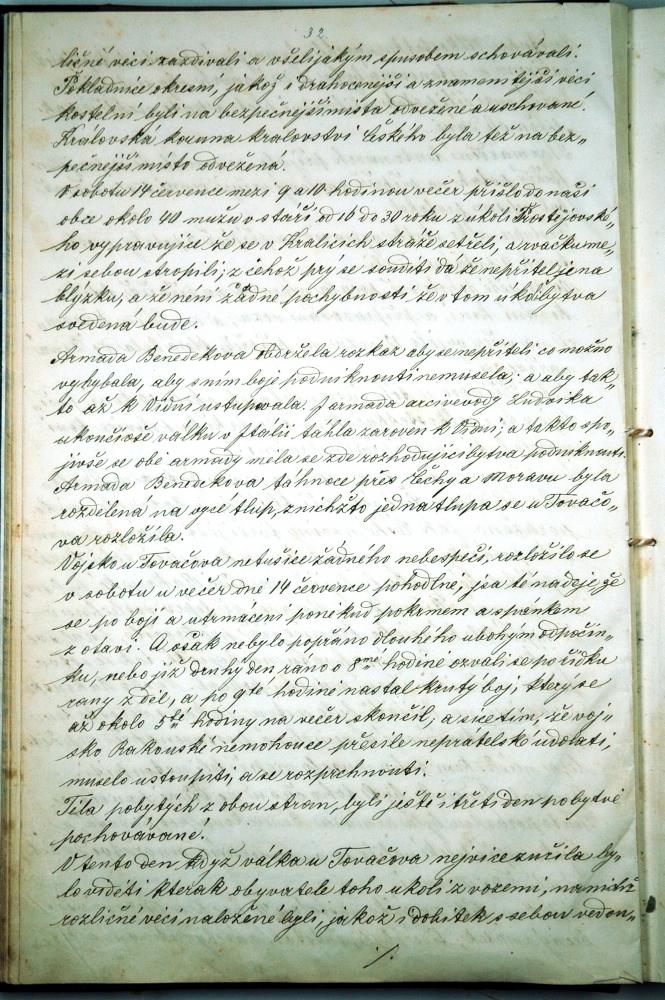 32
ličné věci zazdívali a všelijakým spusobem schovávali.
Pokladnice okresní, jakož i drahocenější a znamenitější věci
kostelní byli na bezpečnější místa odvežené a uschované.
Královská koruna kralovství Českého byla též na bez„
pečnější místo odvežena.
V sobotu 14 července mezi 9 a 10 hodinou večer přišlo do naší
obce okolo 40 mužů v stáří od 16 do 30 roku z úkolí Prostějovské„
ho vypravujíce že se v Kralicích stráže setřeli, a rvačku me„
zi sebou stropili; z čehož prý se souditi dá že nepřítel je na
blýzku, a že není žádné pochybnosti že v tom úkolí bytva
svedená bude.
Armada Benedekova obdržela rozkaz aby se nepříteli co možno
vyhybala, aby s ním boje podniknouti nemusela; a aby tak„
to až k Vídni ustupovala. I armada arcivevody Ludvika
ukončivše válku v Itálii táhla zaroveň k Vídni; a takto spo„
jivše se obě armady měla se zde rozhodující bytva podniknouti.
Armada Benedekova táhnoce přes Čechy a Moravu byla
rozdělena na vycé tlup, z nichžto jedna tlupa se u Tovačo„
va rozložila.
Vojsko u Tovačova netušíce žádného nebespečí, rozložilo se
v sobotu u večer dné 14 července pohodlné, jsa té naděje že
se po boji a utrmácení ponékud pokrmem a spankem
zotaví. A však nebylo popřáno dlouheho ubohým odpočin„
ku, nebo již druhý den rano o 8mé hodiné ozvali se po řídku
rany z děl, a po 9té hodiné nastal krutý boj, který se
až okolo 5té hodiny na večer skončil, a sice tím, že voj„
sko Rakouské nemohouce přesile nepřatelské údolati,
muselo ustoupiti, a se rozprchnouti.
Těla pobytých z obou stran, byli ještě i třetí den po bytvě
pochovávané.
V tento den když válka u Tovačova nejvíce zuřila by„
lo viděti kterak obyvatele toho ukolí z vozemi, na nichž
rozličné věci naložené byli, jakož i dobitek s sebou vedou„
./.